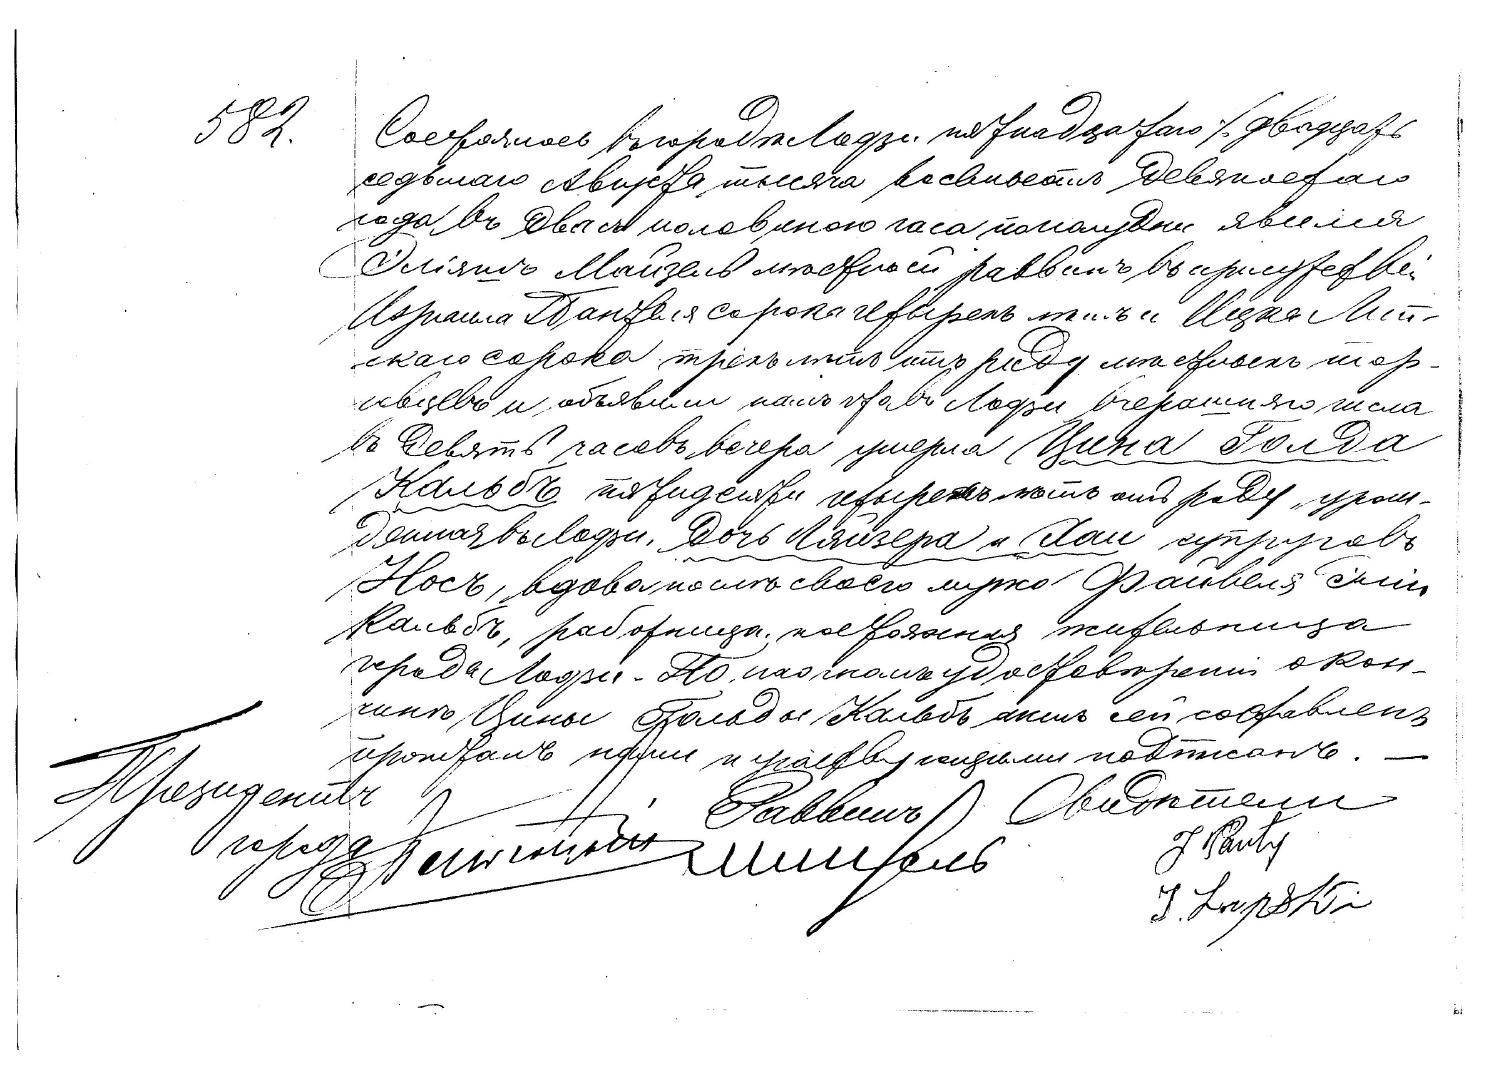 582.
Состоялось въ городѣ Лодзи пятнадцатаго /: двадцать
седьмаго Августа тысяча восемьсотъ девяностаго
года въ два съ половиною часа пополудни явился
Эліяшъ Майзель мѣстный раввинъ въ присутствіи
Израиля сорока четырехъ лѣтъ и Ицка Лип-
скаго сорока трехъ лѣтъ отъ роду мѣстныхъ тор-
говцевъ и объявили намъ что въ Лодзи вчерашняго числа
въ девять часовъ вечера умерла Цина Голда
Кальбъ пятидесяти четырехъ лѣтъ отъ роду, урож-
денная въ Лодзи, дочь Ляйзера и Хаи супруговъ
Носъ, вдова послѣ своего мужа Файвеля
Кальбъ, работница, постоянная жительница
города Лодзи. - По наочномъ удостовѣреніи о кон-
чинѣ Цины Гольды Кальбъ актъ сей составленъ
прочтенъ нами и присутствующими подписанъ. —
Президентъ
города
Раввинъ
Майзель
Свидѣтели
J Panty
J. Lipski